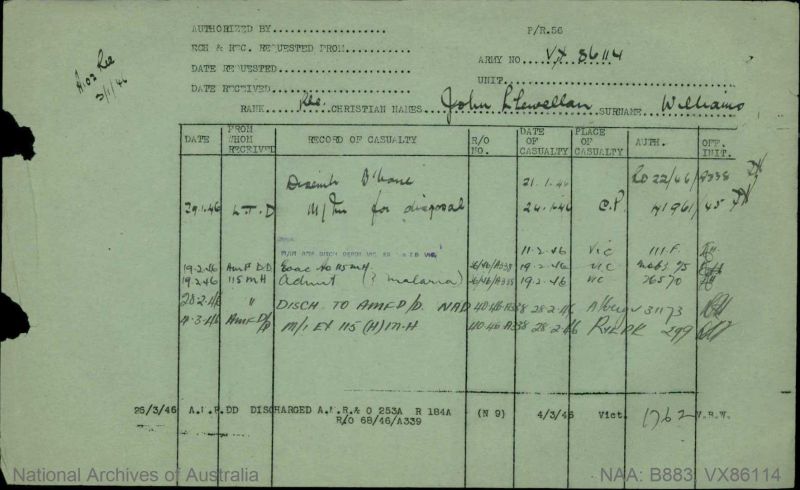 AUTHORIZED BY
P/R.56
ECH & REC. REQUESTED FROM
ARMY NO. VX 86114
DATE REQUESTED
UNIT
DATE RECEIVED
RANK Pte. CHRISTIAN NAMES John Llewellan SURNAME Williams
DATE
FROM WHOM RECEIVED
RECORD OF CASUALTY
R/O NO.
DATE OF CASUALTY
PLACE OF CASUALTY
AUTH.
OFF. INIT.
Disemb B'bane 21.1.46 RO 22/46/A338
29.1.46 L.T.D M/In for disposal 24.1.46 C.P. 45
11.2.46 Vic 111.F.
19.2.46 AmF D.D Evac to 115 MH. 36/46/A338 19.2.46 Vic
19.2.46 115 MH Admit (? malaria) 36/46/A338 19.2.46 Vic 76570
28.2.46 " DISCH. TO AMF D/D. NAD 40.46.A338 28.2.46 31173
4.3.46 AMF D/D M/I EX 115 (H) M.H 40.46 A338 28.2.46 R.PK PK 299
26/3/46 A.M.F.DD DISCHARGED A.M.R.& O 253A R 184A (N 9) 4/3/46 Vict. 1762 V.B.W.
R/O 68/46/A339
National Archives of Australia
NAA: B883, VX86114